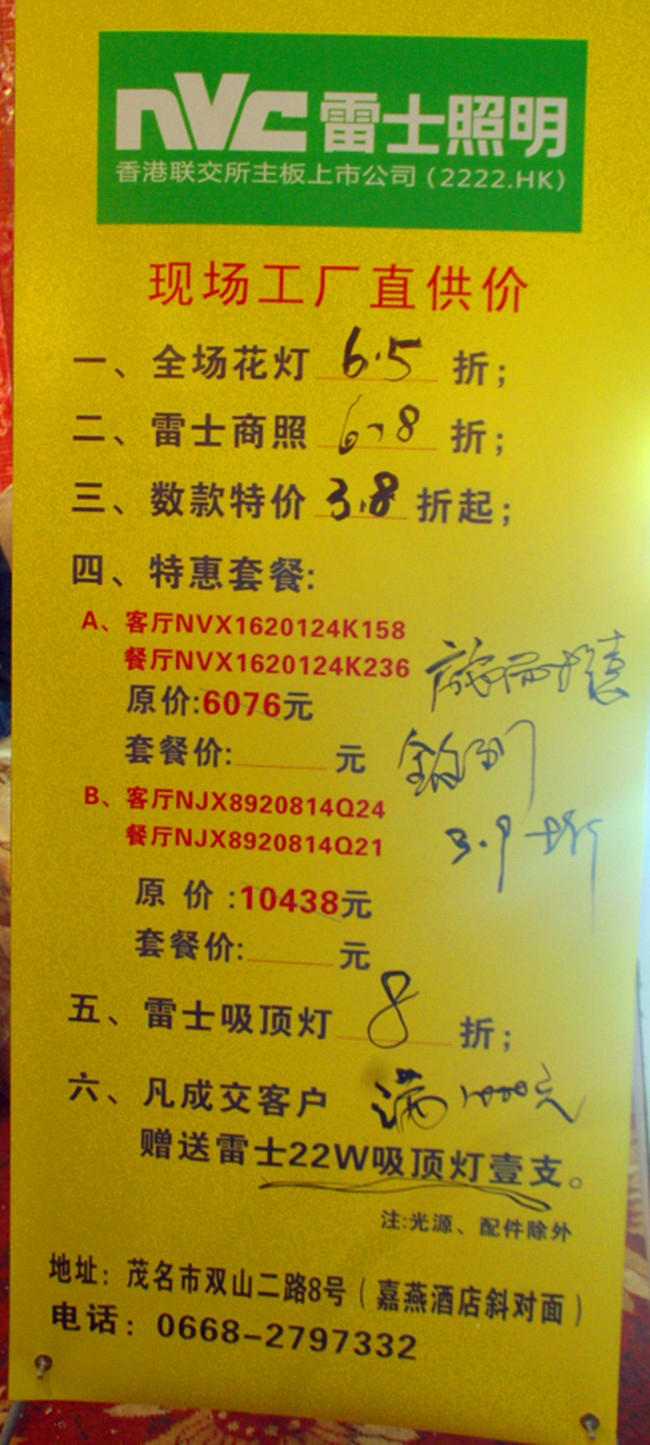 nvc 雷士照明
香港联交所主板上市公司（2222.HK）
现场工厂直供价
一、全场花灯 6.5 折；
二、雷士商照 6.8 折；
三、数款特价 3.8 折起；
四、特惠套餐:
A、客厅NVX1620124K158
餐厅NVX1620124K236
原价:6076元
套餐价: 元
B、客厅NJX8920814Q24
餐厅NJX8920814Q21
3.9 折
原 价 :10438元
套餐价: 元
五、雷士吸顶灯 8 折；
六、凡成交客户 满1000元
赠送雷士22W吸顶灯壹支。
注:光源、配件除外
地址：茂名市双山二路8号（嘉燕酒店斜对面）
电话：0668-2797332